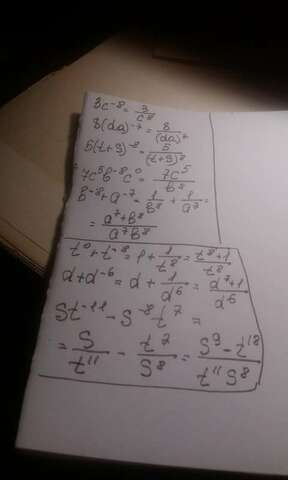 3c⁻⁸ = 3/c⁸
8(da)⁻⁷ = 8/(da)⁷
5(t+9)⁻⁸ = 5/(t+9)⁸
7c⁵b⁻⁸c⁰ = 7c⁵/b⁸
b⁻⁸ + a⁻⁷ = 1/b⁸ + 1/a⁷ =
= a⁷+b⁸/a⁷b⁸
t⁰ + t⁻⁸ = 1 + 1/t⁸ = t⁸+1/t⁸
d + d⁻⁶ = d + 1/d⁶ = d⁷+1/d⁶
St⁻¹¹ - S⁻⁸t⁷ =
= S/t¹¹ - t⁷/S⁸ = S⁹-t¹⁸/t¹¹S⁸